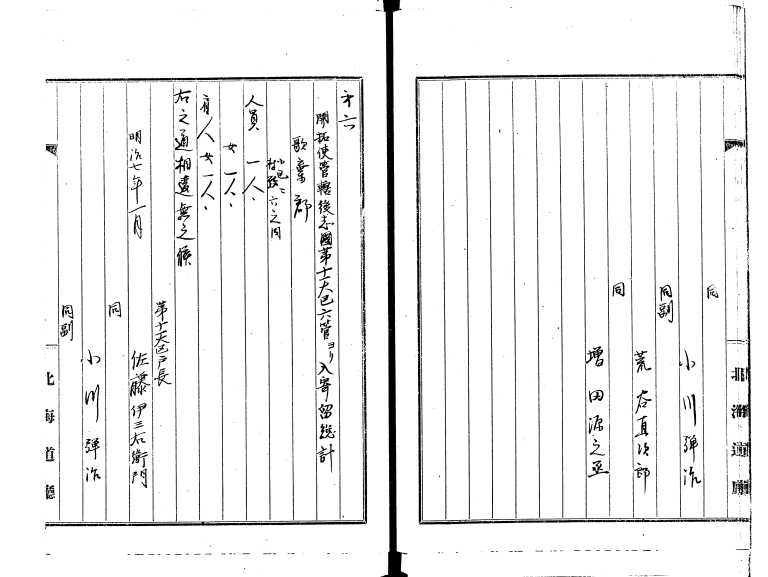 同
小川弾治
同副
荒谷直次郎
同
増田源之丞
北海道廳
才六
開拓使管轄後志國第十一大区六管ヨリ入寄留総計
歌棄郡
小区二
村数六之内
人員一人、
女一人、
〆人女一人、
右之通相違無之候
明治七年一月
第十一大区戸長
佐藤伊三右衛門
同
小川弾治
同副
北海道廳